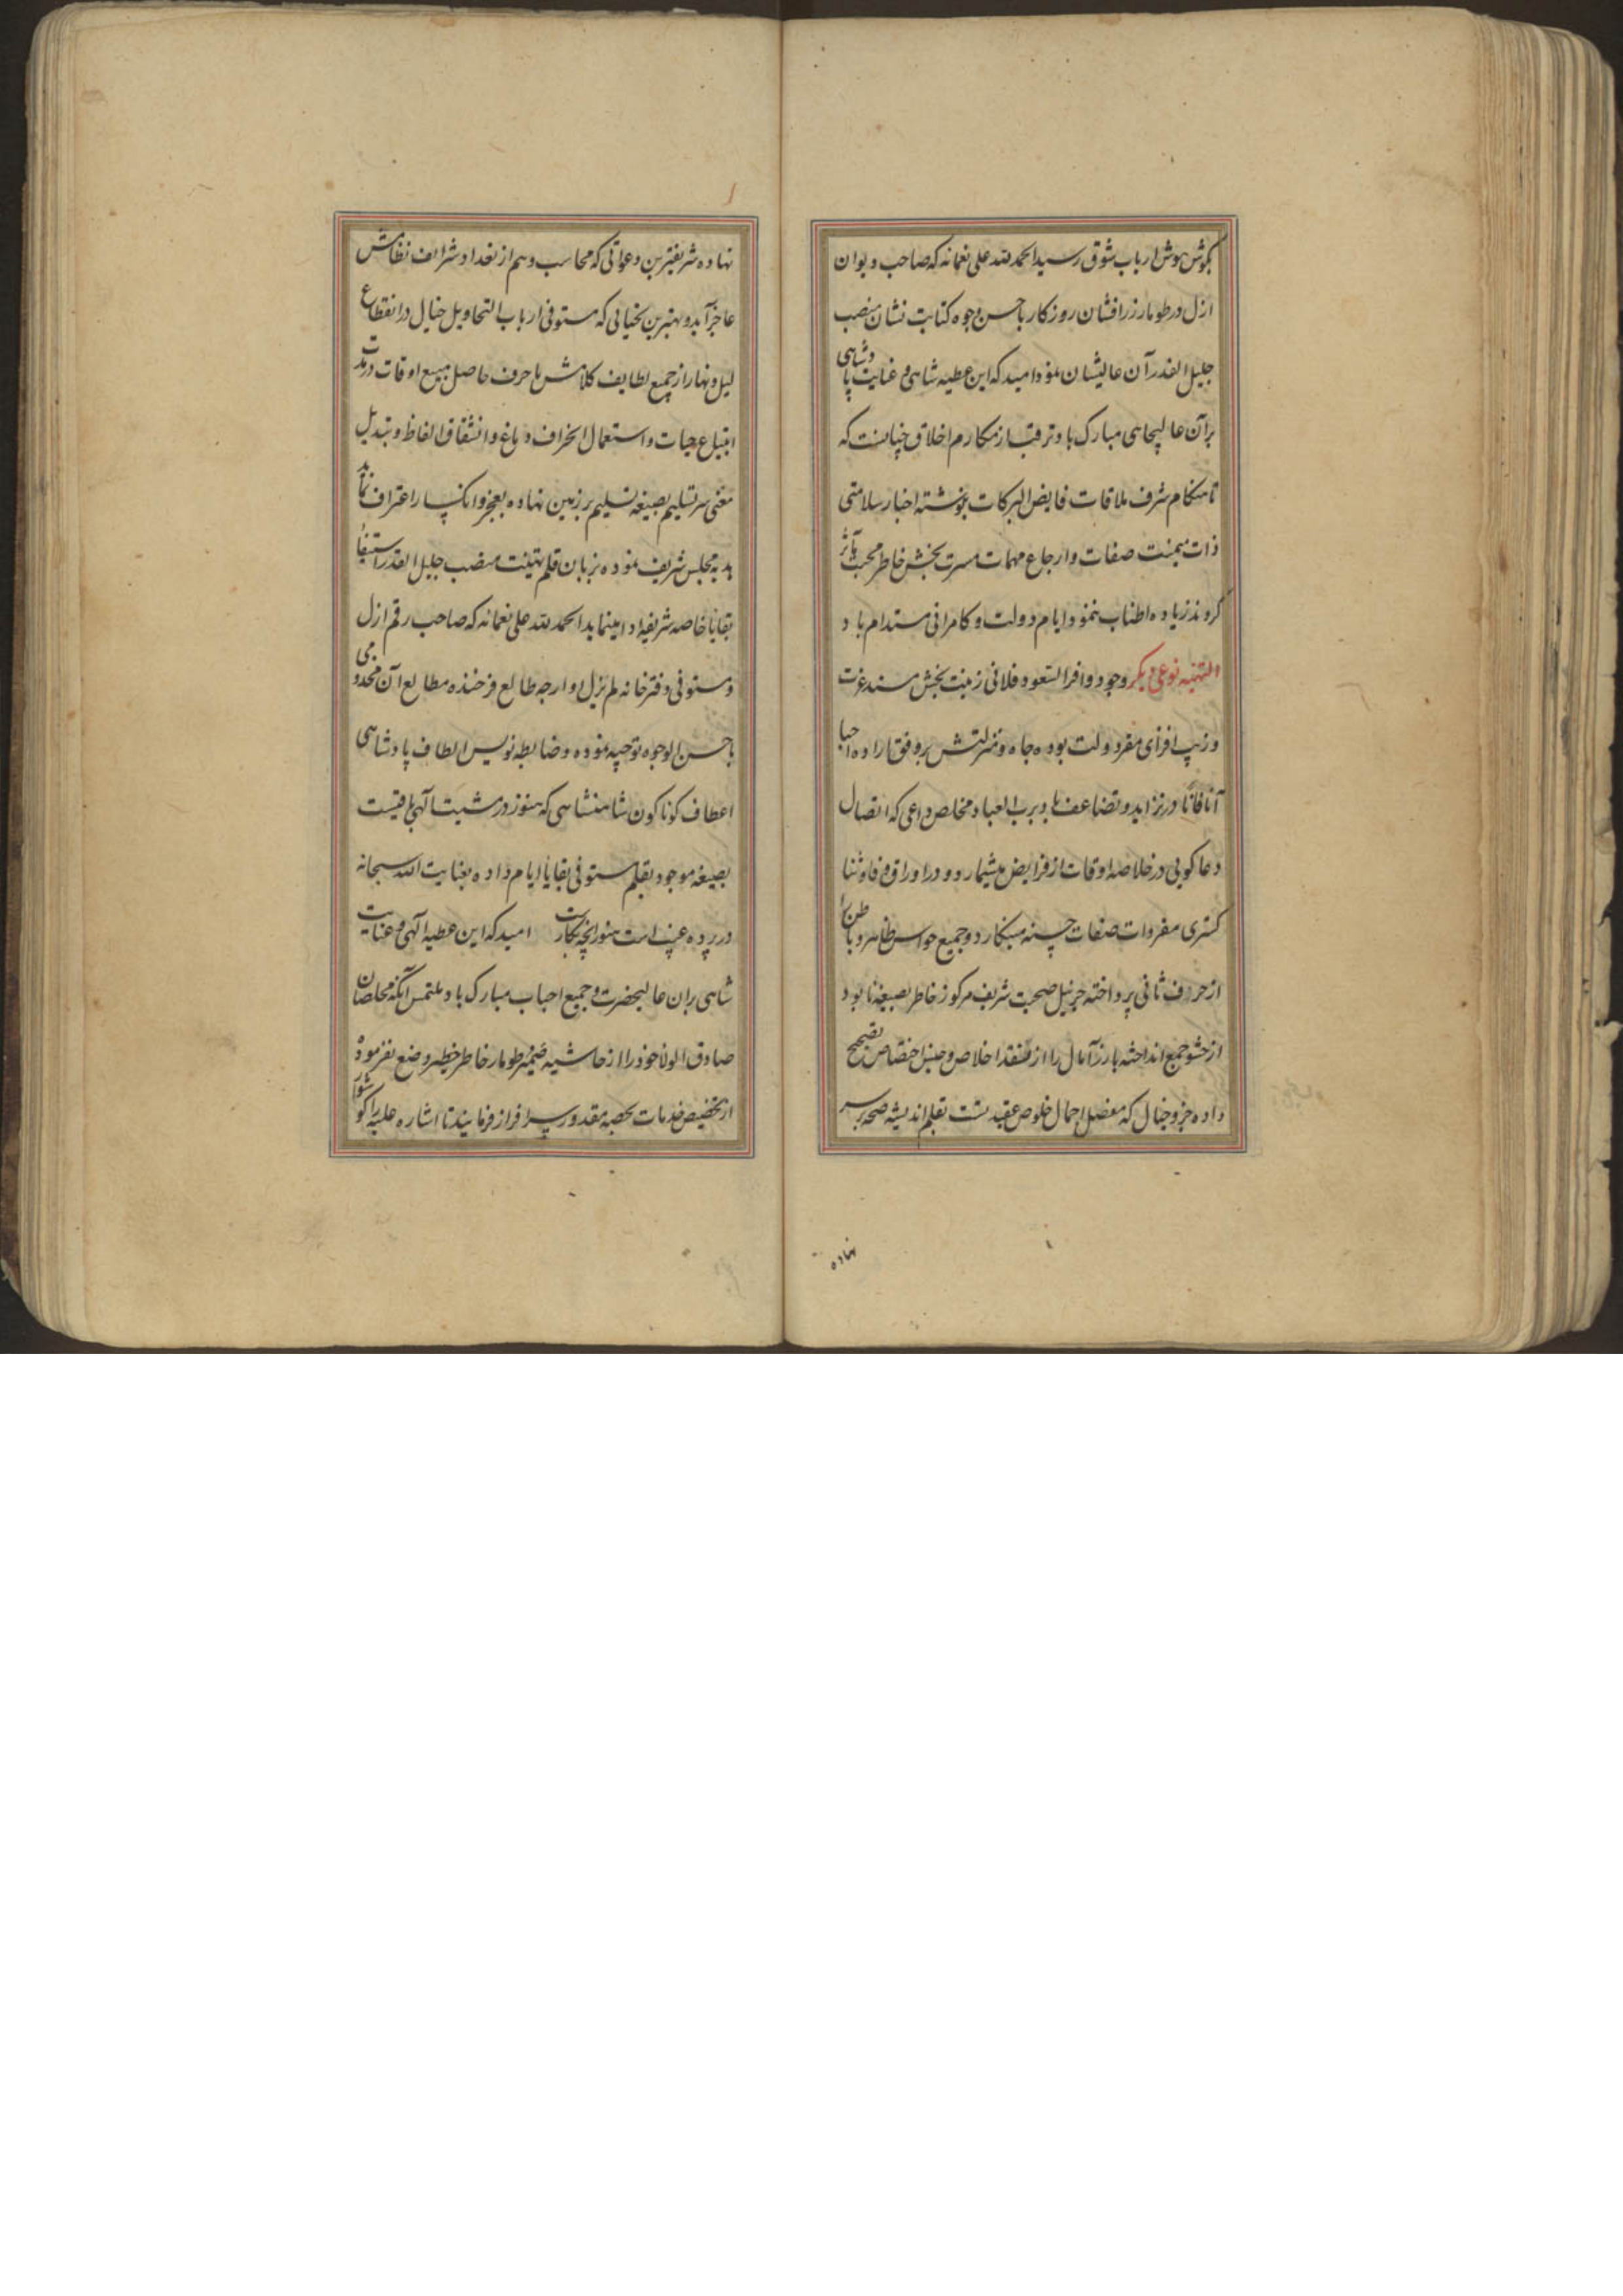 بگوش هوش ارباب شوق رسید الحمد لله علی نعمائه که صاحب دیوان
ازل در طومار زرافشان روزگار باحسن وجوه کتابت نشان منصب
جلیل القدر آن عالیشان نمود امید که این عطیه شاهی و عنایت پادشاهی
بر آن عالیجاهی مبارک باد ترقب از مکارم اخلاق چنانست که
تا هنگام شرف ملاقات فایض البرکات بنوشته اخبار سلامتی
ذات میمنت صفات و ارجاع مهمات مسرت بخش خاطر محبت مآثر
گردند زیاده اطناب ننمود ایام دولت و کامرانی مستدام باد
التهنیه نوعی دیگر وجود وافر السعود فلانی زینت بخش مسند عزت
و زیب افزای مقر دولت بوده جاه و منزلتش بر وفق اراده احبا
آنا فانا در تزاید و تضاعف باد برب العباد مخلص داعی که اتصال
دعا گویی در خلاصه اوقات از فرایض میشمارد و در اوراق وفا و ثنا
گستری مفردات صفات حسنه مینگارد و جمیع حواس ظاهر و باطن
از حرف ثانی پرداخته جز نیل صحبت شریف مرکوز خاطر بصیغه نابود
از حشو جمع انداخته بارز آمال را از نقد اخلاص و جنس اختصاص تصحیح
داده جزو خیال که مفصل اجمال خلوص عقیدتست بقلم اندیشه صحه بر سر
نهاده
نهاده شریفترین دعواتی که محاسب وهم از تعداد شرایف نظامش
عاجز آید و بهترین تحیاتی که مستوفی ارباب التحاویل خیال در انقطاع
لیل و نهار از جمیع لطایف کلامش با حرف حاصل مبیع اوقات در مدت
ابتیاع حیات و استعمال انحراف دماغ و انشقاق الفاظ و تبدیل
معنی سر تسلیم بصیغه تسلیم بر زمین نهاده بعجز و انکسار اعتراف نماید
هدیه مجلس شریف نموده بزبان قلم تهنیت منصب جلیل القدر استیفاء
بقایا خاصه شریفه ادا مینماید الحمد لله علی نعمائه که صاحب رقم ازل
و مستوفی دفترخانه لم یزل اوارجه طالع فرخنده مطالع آن مخدومی
باحسن الوجوه توجیه نموده و ضابطه نویس الطاف پادشاهی
اعطاف گوناگون شاهنشاهی که هنوز در مشیت آلهی باقیست
بصیغه موجود بقلم مستوفی بقایا ایام داده بعنایت الله سبحانه
در پرده غیب است هنوز آنچه بکارت امید که این عطیه آلهی و عنایت
شاهی بران عالیحضرت و جمیع احباب مبارک باد ملتمس آنکه مخلصان
صادق الولا خود را از حاشیه ضمیر و طومار خاطر خطیر وضع نفرموده
از تخصیص خدمات بحصه مقدور سرافراز فرمایند تا اشاره علیه را گوشوار